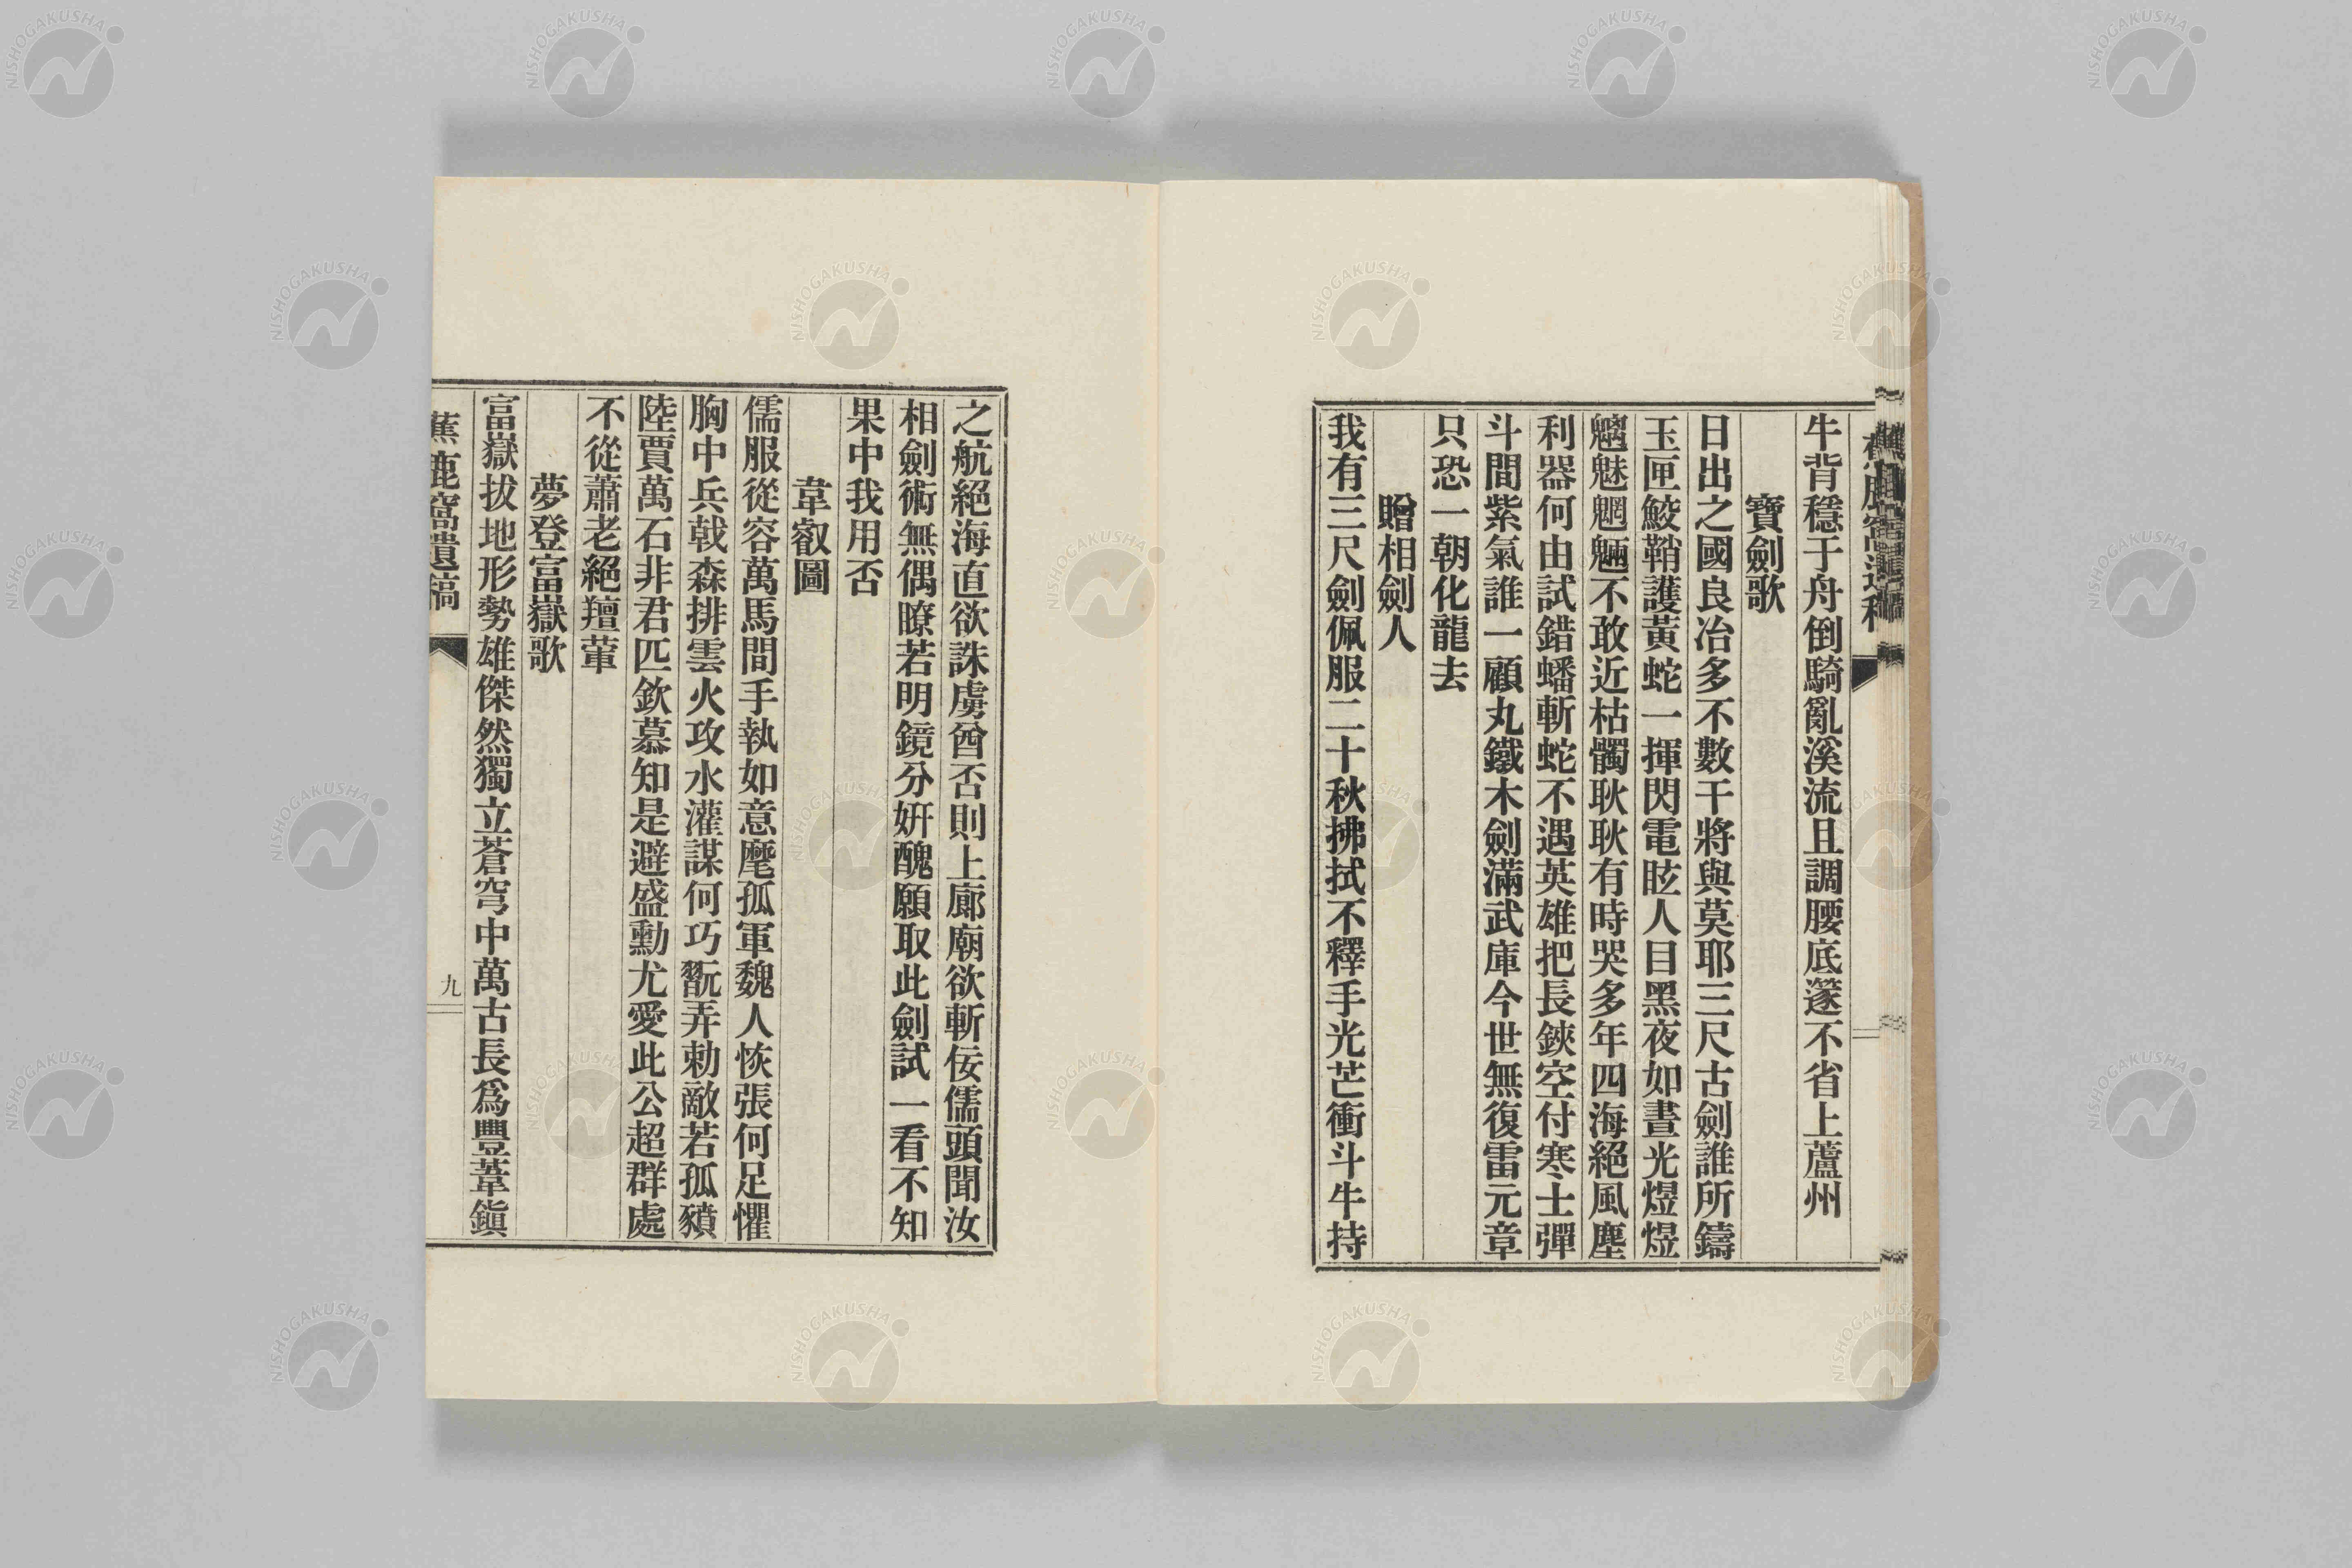 牛背穩于舟倒騎亂溪流且調腰底篴不省上蘆州
寶劍歌
日出之國良冶多不數干將與莫耶三尺古劍誰所鑄
玉匣鮫鞘護黃蛇一揮閃電眩人目黑夜如晝光煜煜
魑魅魍魎不敢近枯髑耿耿有時哭多年四海絕風塵
利器何由試錯蟠斬蛇不遇英雄把長鋏空付寒士彈
斗間紫氣誰一顧丸鐵木劍滿武庫今世無復雷元章
只恐一朝化龍去
贈相劍人
我有三尺劍佩服二十秋拂拭不釋手光芒衝斗牛持
之航絕海直欲誅虜酋否則上廊廟欲斬佞儒頭聞汝
相劍術無偶瞭若明鏡分妍醜願取此劍試一看不知
果中我用否
韋叡圖
儒服從容萬馬間手執如意麾孤軍魏人恢張何足懼
胸中兵戟森排雲火攻水灌謀何巧翫弄勍敵若孤豶
陸賈萬石非君匹欽慕知是避盛勳尤愛此公超群處
不從蕭老絕羶葷
夢登富嶽歌
富嶽拔地形勢雄傑然獨立蒼穹中萬古長爲豐葦鎭
蕉鹿窩遺稿
九
NISHOGAKUSHA